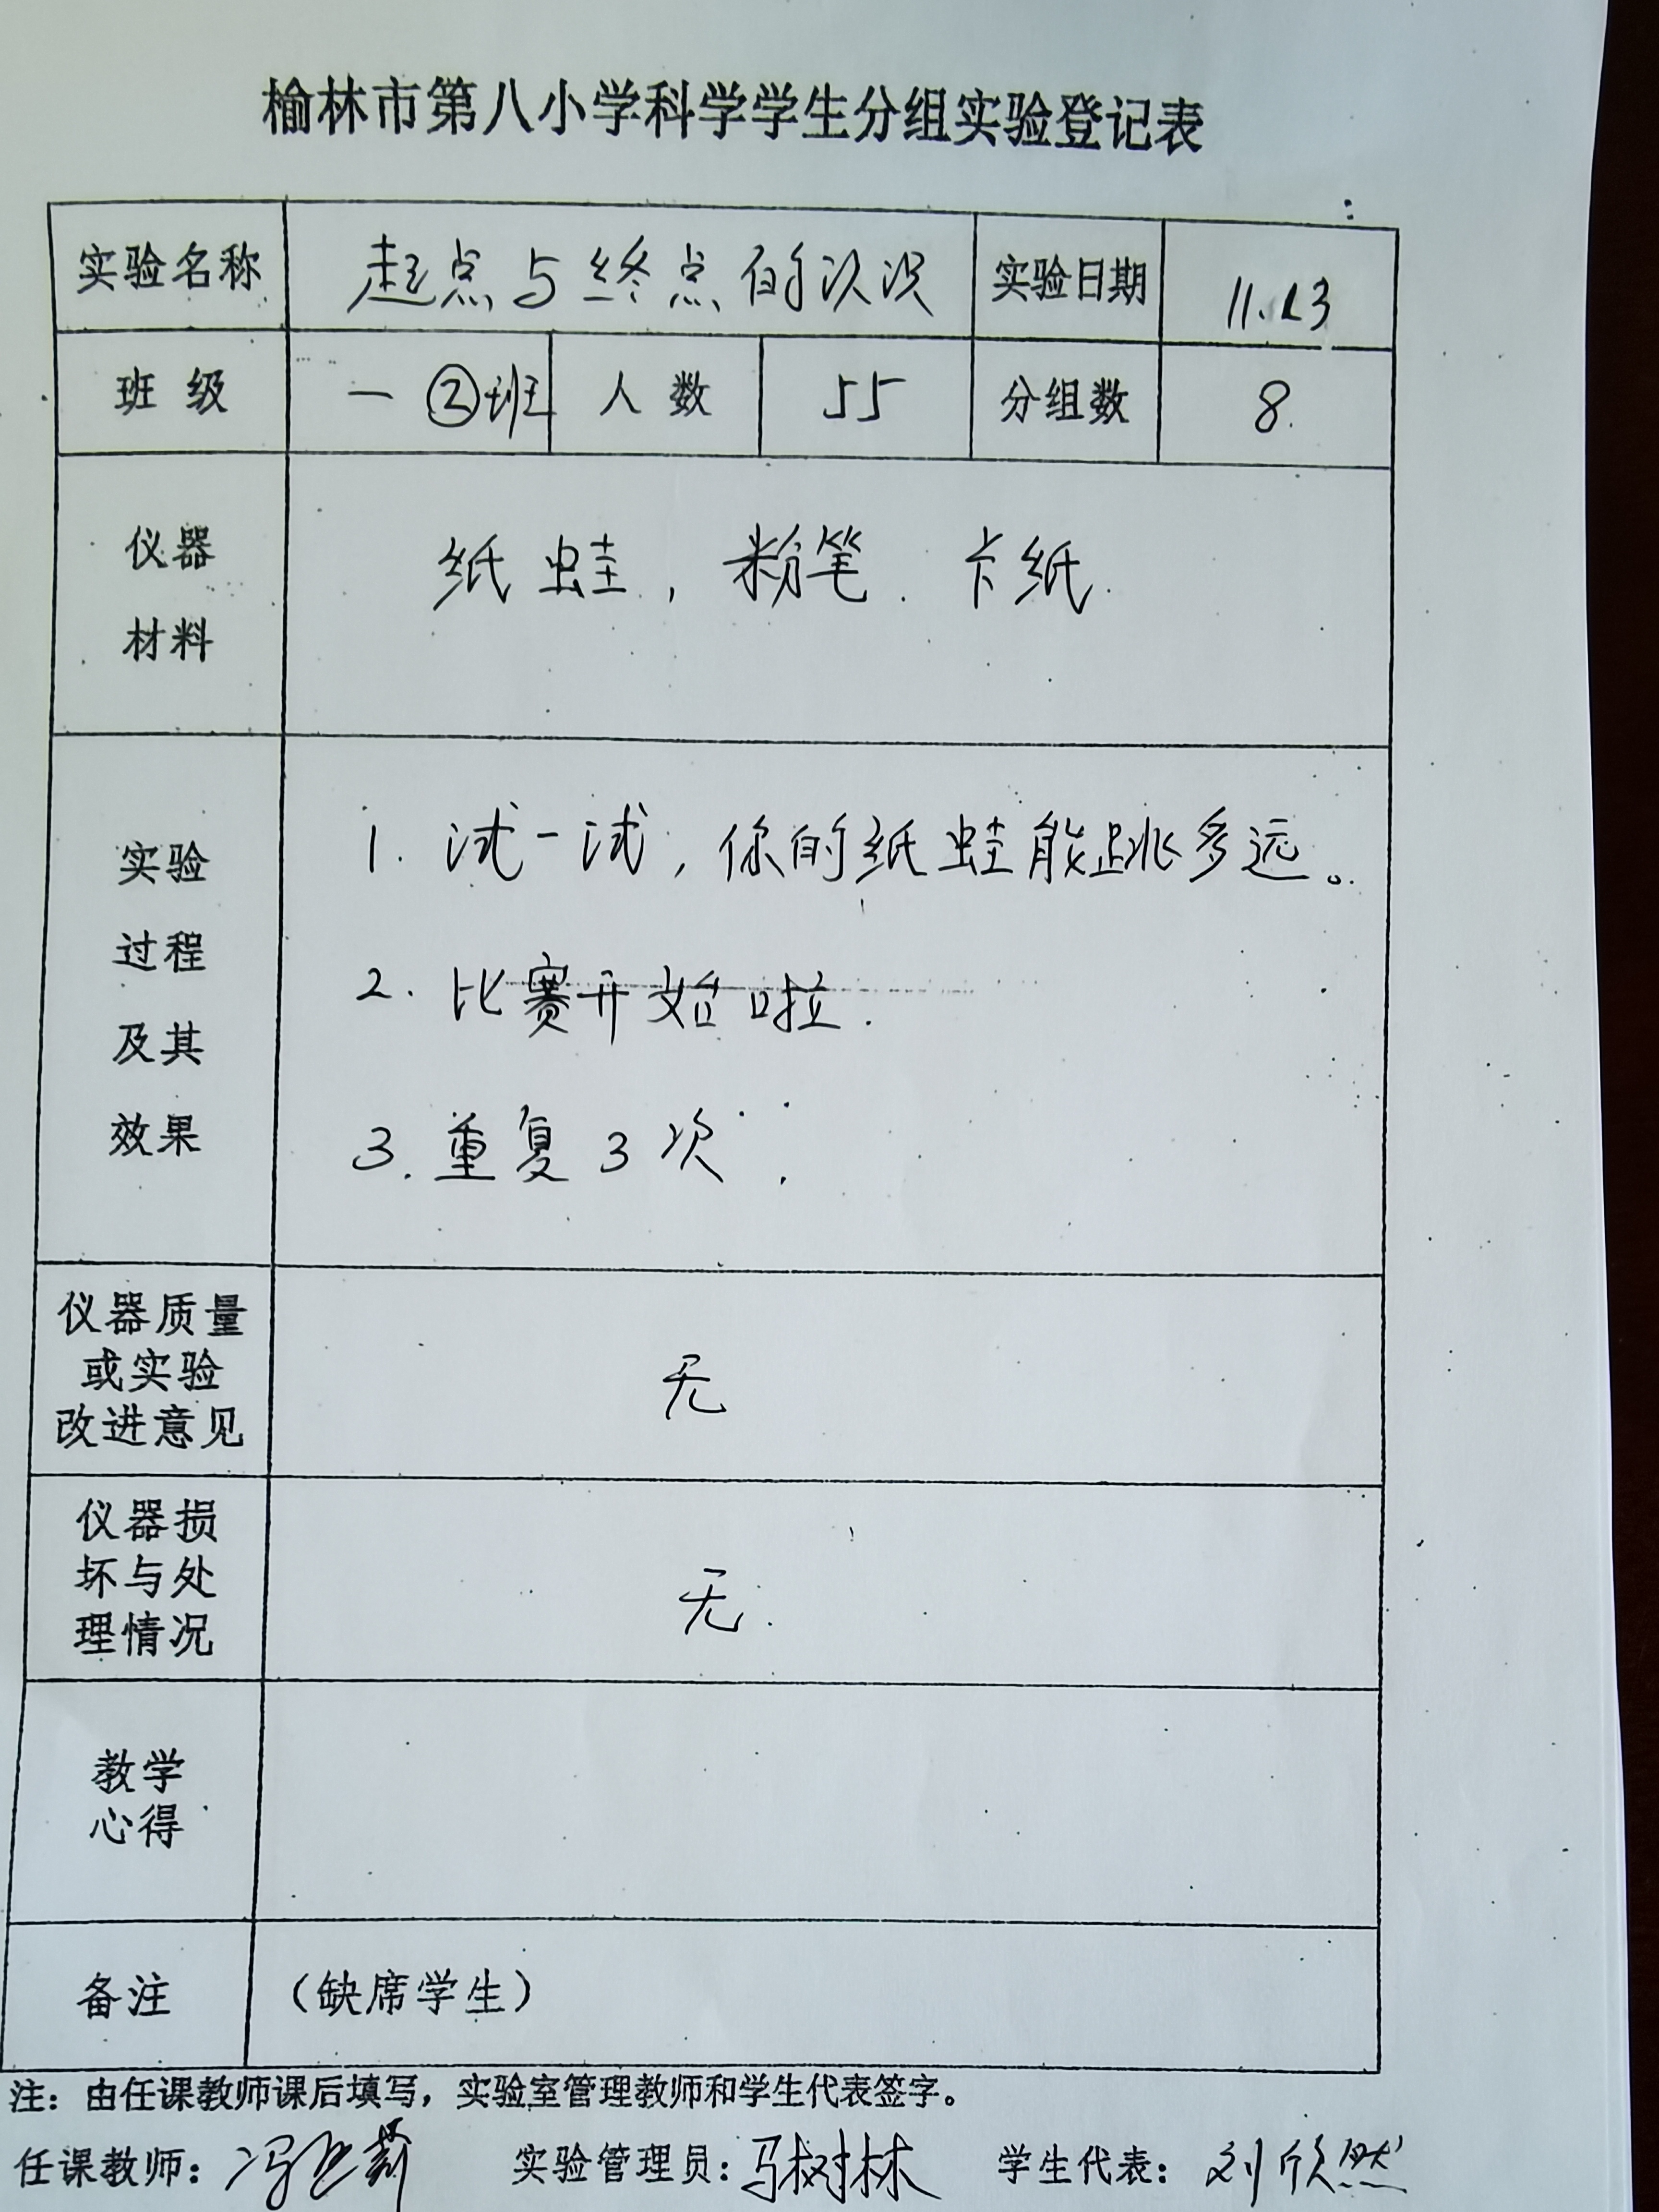 榆林市第八小学科学学生分组实验登记表
实验名称 起点与终点的次次 实验日期 11.13
班 级 一②班 人 数 55 分组数 8.
仪器
材料
纸蛙，粉笔. 卡纸.
实验
过程
及其
效果
1. 试一试，你的纸蛙能跳多远。
2. 比赛开始啦.
3. 重复3次.
仪器质量
或实验
改进意见
无
仪器损
坏与处
理情况
无.
教学
心得
备注 （缺席学生）
注：由任课教师课后填写，实验室管理教师和学生代表签字。
任课教师： 实验管理员：马树林 学生代表：刘欣然